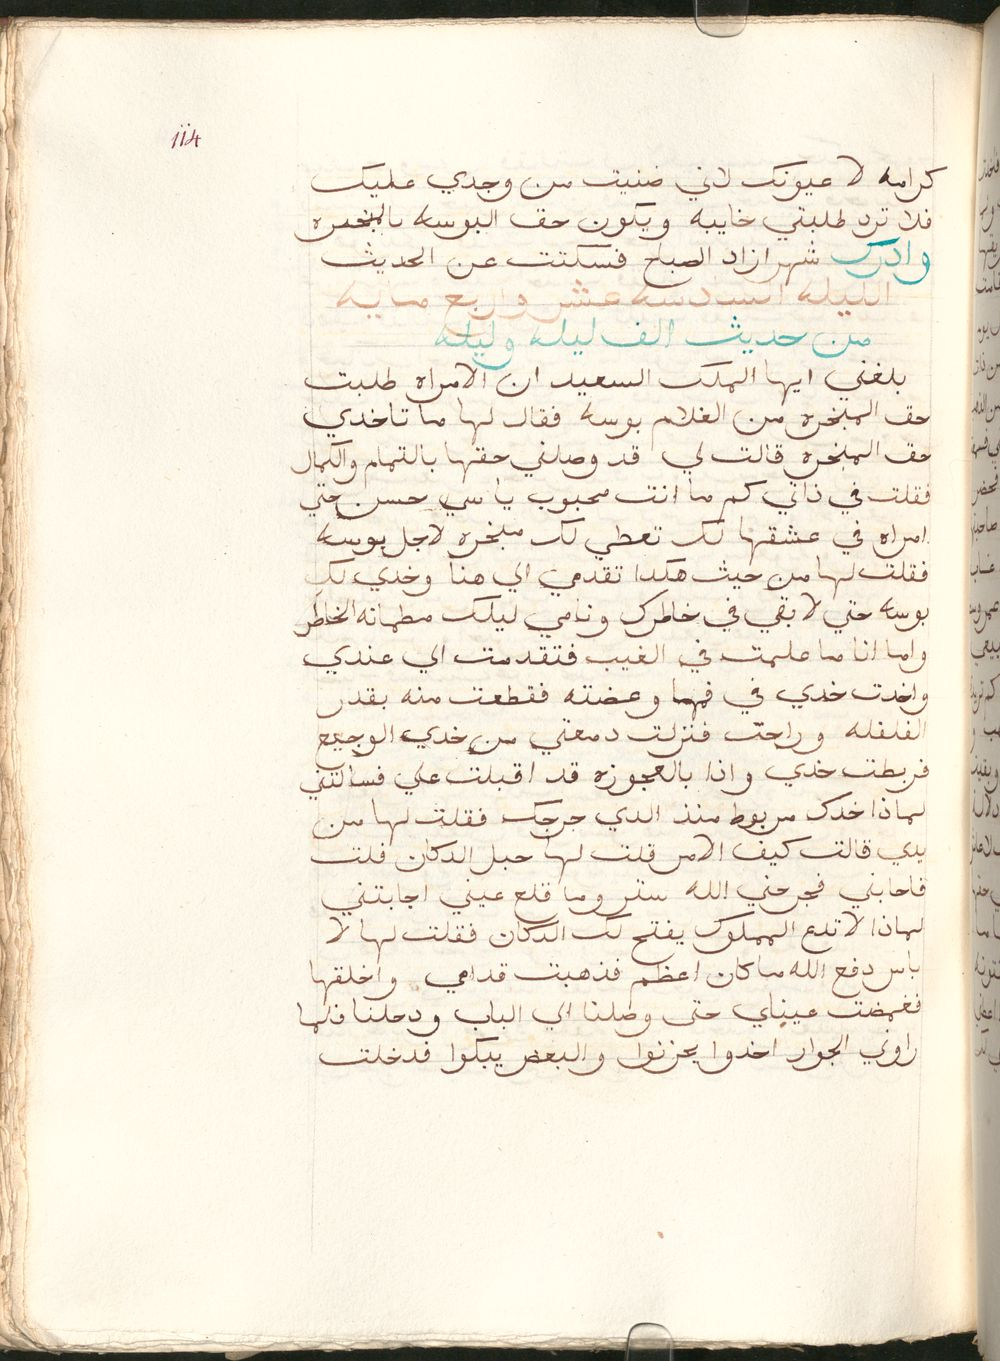 114
كرامه لا عيونك لاني ضنيت من وجدي عليك
فلا ترد طلبتي خايبه ويكون حق البوسه بالمبخره
وادرك شهرازاد الصباح فسكتت عن الحديث
الليله السادسه عشر واربع مايه
من حديث الف ليله وليله
بلغني ايها الملك السعيد ان الامراه طلبت
حق المبخره من الغلام بوسه فقال لها ما تاخدي
حق المبخره قالت لي قد وصلني حقها بالتمام والكمال
فقلت في ذاتي كم ما انت محبوب يا سي حسن حتي
امراه في عشقها لك تعطي لك مبخره لاجل بوسه
فقلت لها من حيث هكدا تقدمي الي هنا وخدي لك
بوسه حتي لا بقي في خاطرك ونامي ليلك مطمانه الخاطر
واما انا ما علمت في الغيب فتقدمت الي عندي
واخدت خدي في فمها وعضته فقطعت منه بقدر
الفلفله وراحت فنزلت دمعتي من خدي الوجيع
فربطت خدي واذا بالعجوزه قد اقبلت علي فسالتني
لماذا خدك مربوط منذ الدي جرجك فقلت لها من
يدي قالت كيف الامر قلت لها حبل الدكان فلت
فاحابني فجرحني الله ستر وما قلع عيني اجابتني
لماذا لا تدع المملوك يفتح لك الدكان فقلت لها لا
باس دفع الله ما كان اعظم فذهبت قدامي واخلقها
فغمضت عيناي حتى وصلنا الي الباب ودخلنا فلما
راوني الجوار اخدوا يحزنوا والبعض يبكوا فدخلت